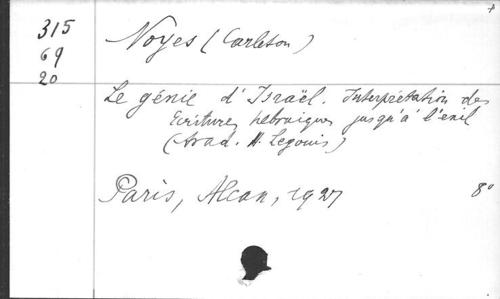 315
69
20
Noyes (Carleton)
Le génie d'Israël. Interprétation des
Ecritures hébraïques jusqu'à l'exil
(trad. H. Legouis)
Paris, Alcan, 1927 8°